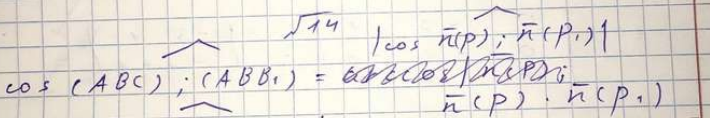 √14 |cos n̄(p) ; n̄(p₁)|
cos (ABC) ; (ABB₁) =
n̄(p) · n̄(p₁)